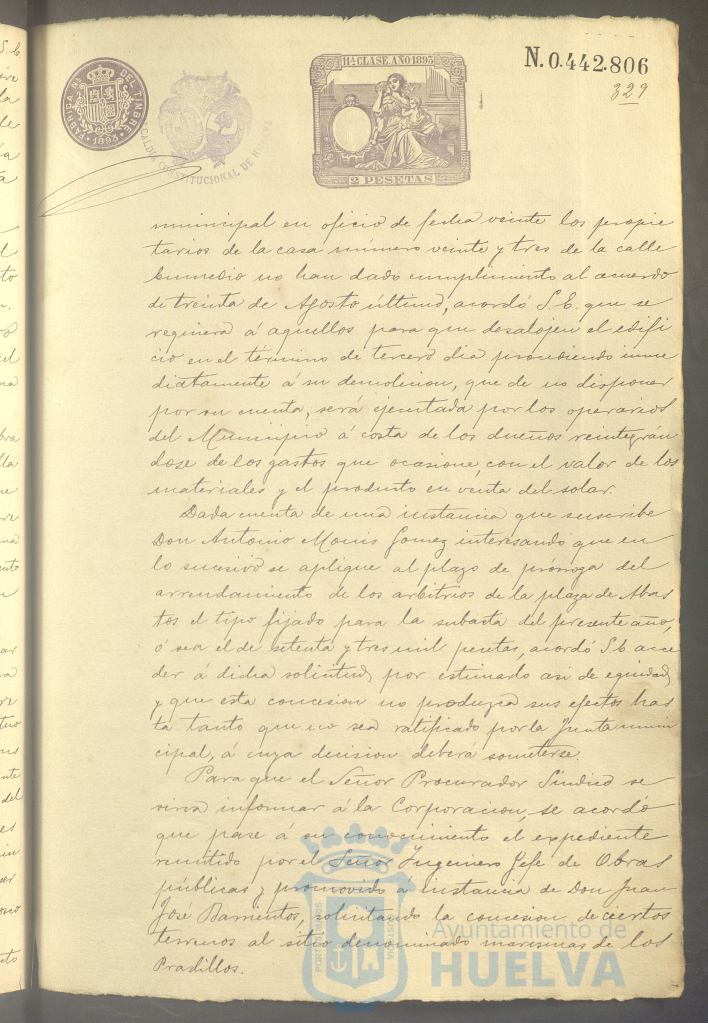 11ª CLASE. AÑO 1893
N. 0.442.806
329
FÁBRICA Nal DEL TIMBRE
1893
ALCALDIA CONSTITUCIONAL DE HUELVA
2 PESETAS
municipal en oficio de fecha veinte los propie
tarios de la casa número veinte y tres de la calle
no han dado cumplimiento al acuerdo
de treinta de Agosto último, acordó S. E. que se
requiera á aquellos para que desalojen el edifi
cio en el termino de tercero dia procediendo inme
diatamente á su demolicion, que de no disponer
por su cuenta, será ejecutada por los operarios
del Municipio á costa de los dueños reintegrán
dose de los gastos que ocasione, con el valor de los
materiales y el producto en venta del solar.
Dada cuenta de una instancia que suscribe
Don Antonio Gomez interesando que en
lo sucesivo se aplique al plazo de prorroga del
arrendamiento de los arbitrios de la plaza de Abas
tos el tipo fijado para la subasta del presente año,
ó sea el de setenta y tres mil pesetas, acordó S. E. acce
der á dicha solicitud, por estimarlo asi de equidad,
y que esta concesion no produzca sus efectos has
ta tanto que no sea ratificado por la Junta muni
cipal, á cuya decision deberá someterse.
Para que el Señor Procurador Síndico se
sirva informar á la Corporacion, se acordó
que pase á su conocimiento el expediente
remitido por el Señor Ingeniero Jefe de Obras
públicas y promovido á instancia de Don Juan
José Barrientos, solicitando la concesion de ciertos
terrenos al sitio denominado marismas de los
Pradillos.
Ayuntamiento de
HUELVA